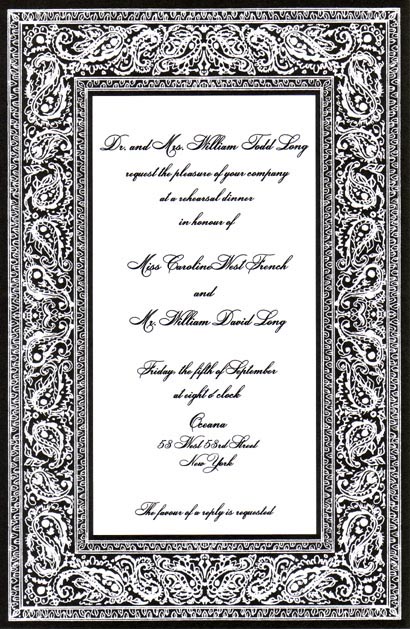 Dr. and Mrs. William Todd Long
request the pleasure of your company
at a rehearsal dinner
in honour of
Miss Caroline West French
and
Mr. William David Long
Friday the fifth of September
at eight o'clock
Oceana
53 West 53rd Street
New York
The favour of a reply is requested